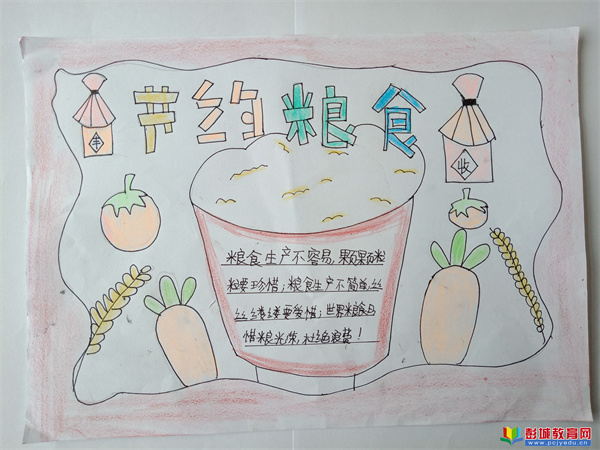 节约粮食
丰
收
粮食生产不容易,颗颗粒
粒要珍惜;粮食生产不简单,丝
丝缕缕要爱惜;世界粮食日
惜粮光荣,杜绝浪费!
彭城教育网
www.pcjyedu.cn